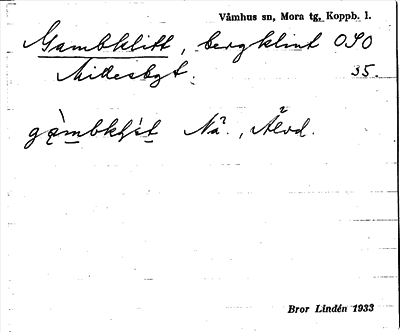 Våmhus sn, Mora tg, Kopph. l.
Gambklitt, bergklint OSO
Indesbyt. 35.
gàmbkḷit Nä., Älvd.
Bror Lindén 1933